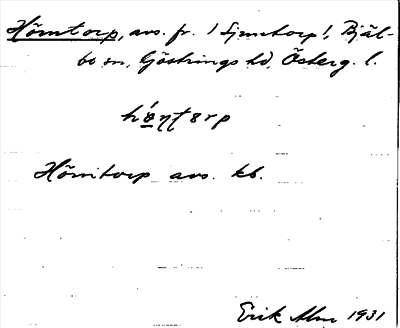 Hömtorp, avs. fr. ! Symtorp!, Bjäl-
bo sn, Göstrings hd, Österg. l.
hó̱ntɘrp
Hömtorp avs. kb.
Erik Alm 1931